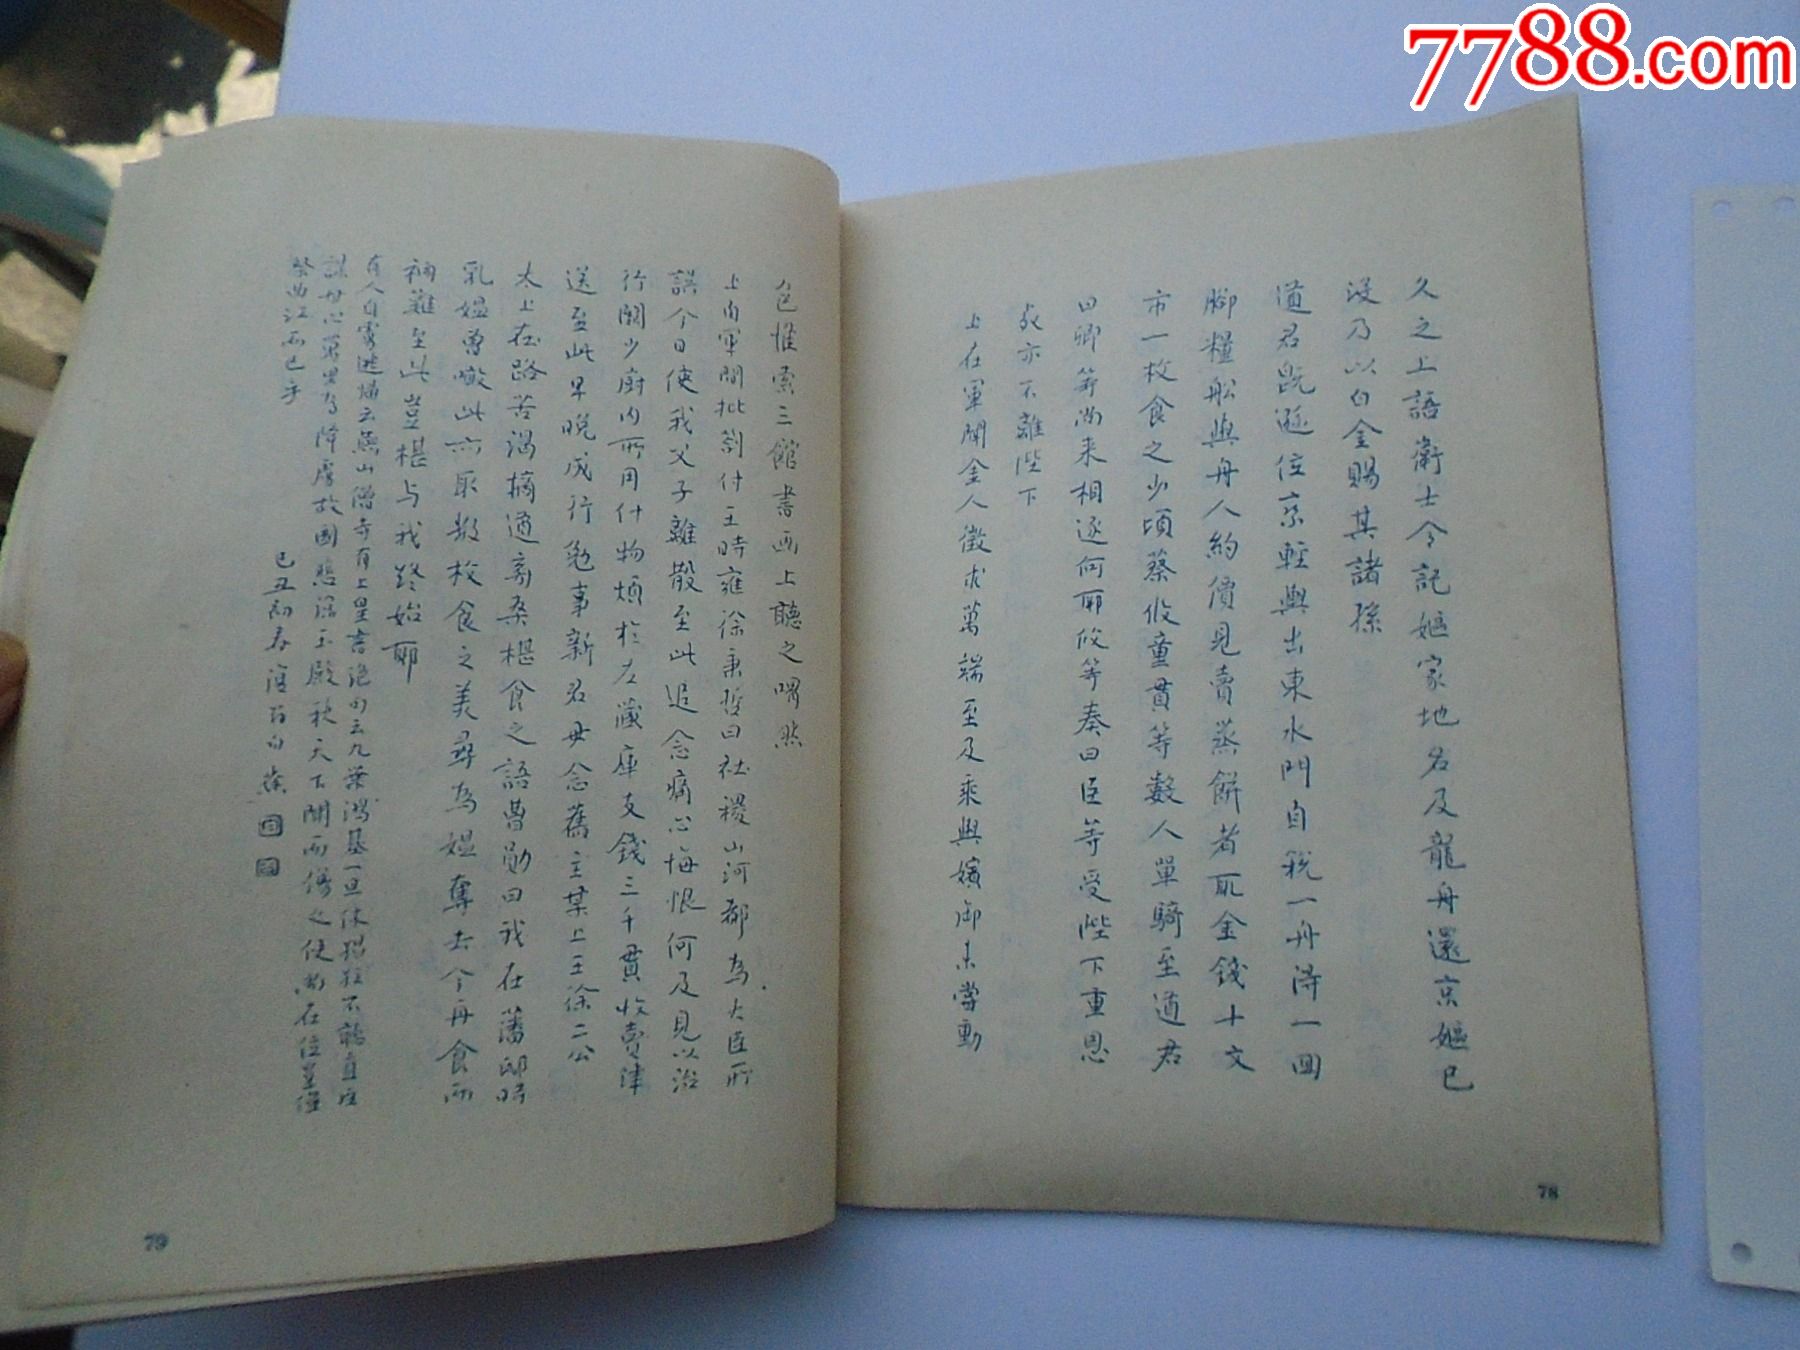 7788.com
久之上語衛士令記嫗家地名及龍舟還京嫗已
沒乃以白金賜其諸孫
道君既遜位京輕輿出東水門自稅一舟得一回
腳糧船與舟人約價見賣蒸餅者取金錢十文
市一枚食之少頃蔡攸童貫等數人單騎至道君
曰卿等尚来相逐何耶攸等奏曰臣等受陛下重恩
死亦不離陛下
上在軍聞金人徵求萬端至及乘輿嬪御未嘗動
色惟索三館書画上聽之喟然
上南軍閒批劄付王時雍徐秉哲曰社稷山河都為大臣所
誤今日使我父子離散至此追念痛心悔恨何及見以治
行闕少廚內所用什物煩於左藏庫支錢三千貫收賣津
送至此早晚成行勉事新君毋念舊主某上王徐二公
太上在路苦渴摘道旁桑椹食之語曹勛曰我在藩邸時
乳媪曾噉此亦取數枚食之美尋為媪奪去今再食而
禍難至此豈椹与我終始耶
有人自雲逃歸云燕山僧寺有上皇書絕句云九葉鴻基一旦休猖狂不聽直臣
謀甘心萬里為降虜故國悲涼玉殿秋天下聞而傷之使尚在位豈僅
祭曲江而已乎
己丑初春
78
79